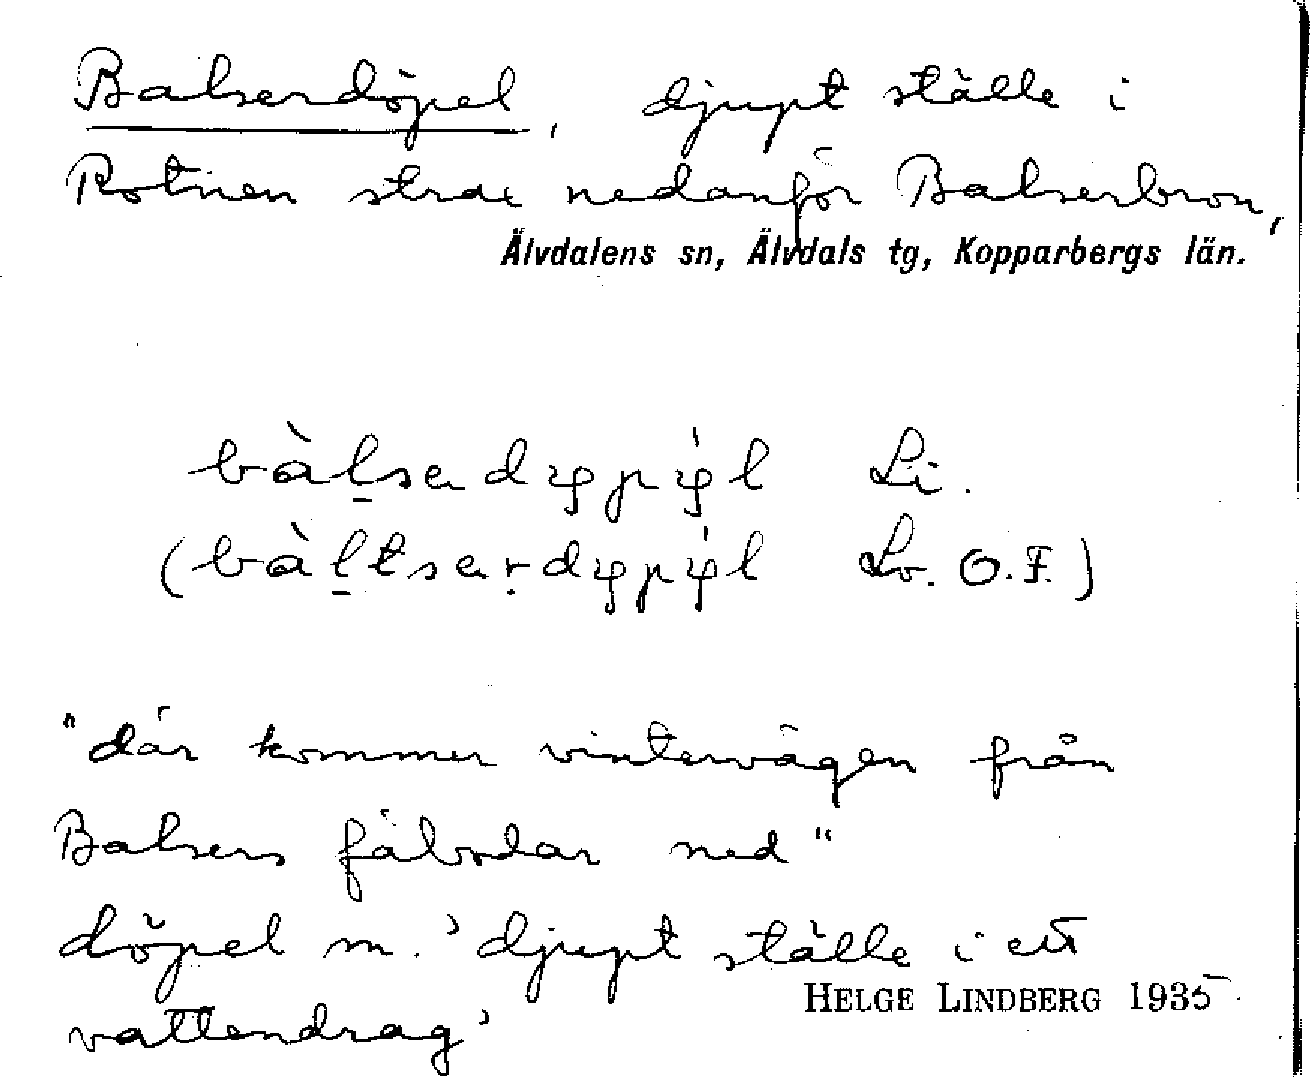 Balserdöpel, djupt ställe i
Rotnen strax nedanför Balserbron,
Älvdalens sn, Älvdals tg, Kopparbergs län.
Li.
Lo. O.F.)
"där kommer vintervägen från
Balsers fäbodar ned"
döpel m. 'djupt ställe i ett
HELGE LINDBERG 1935
vattendrag'